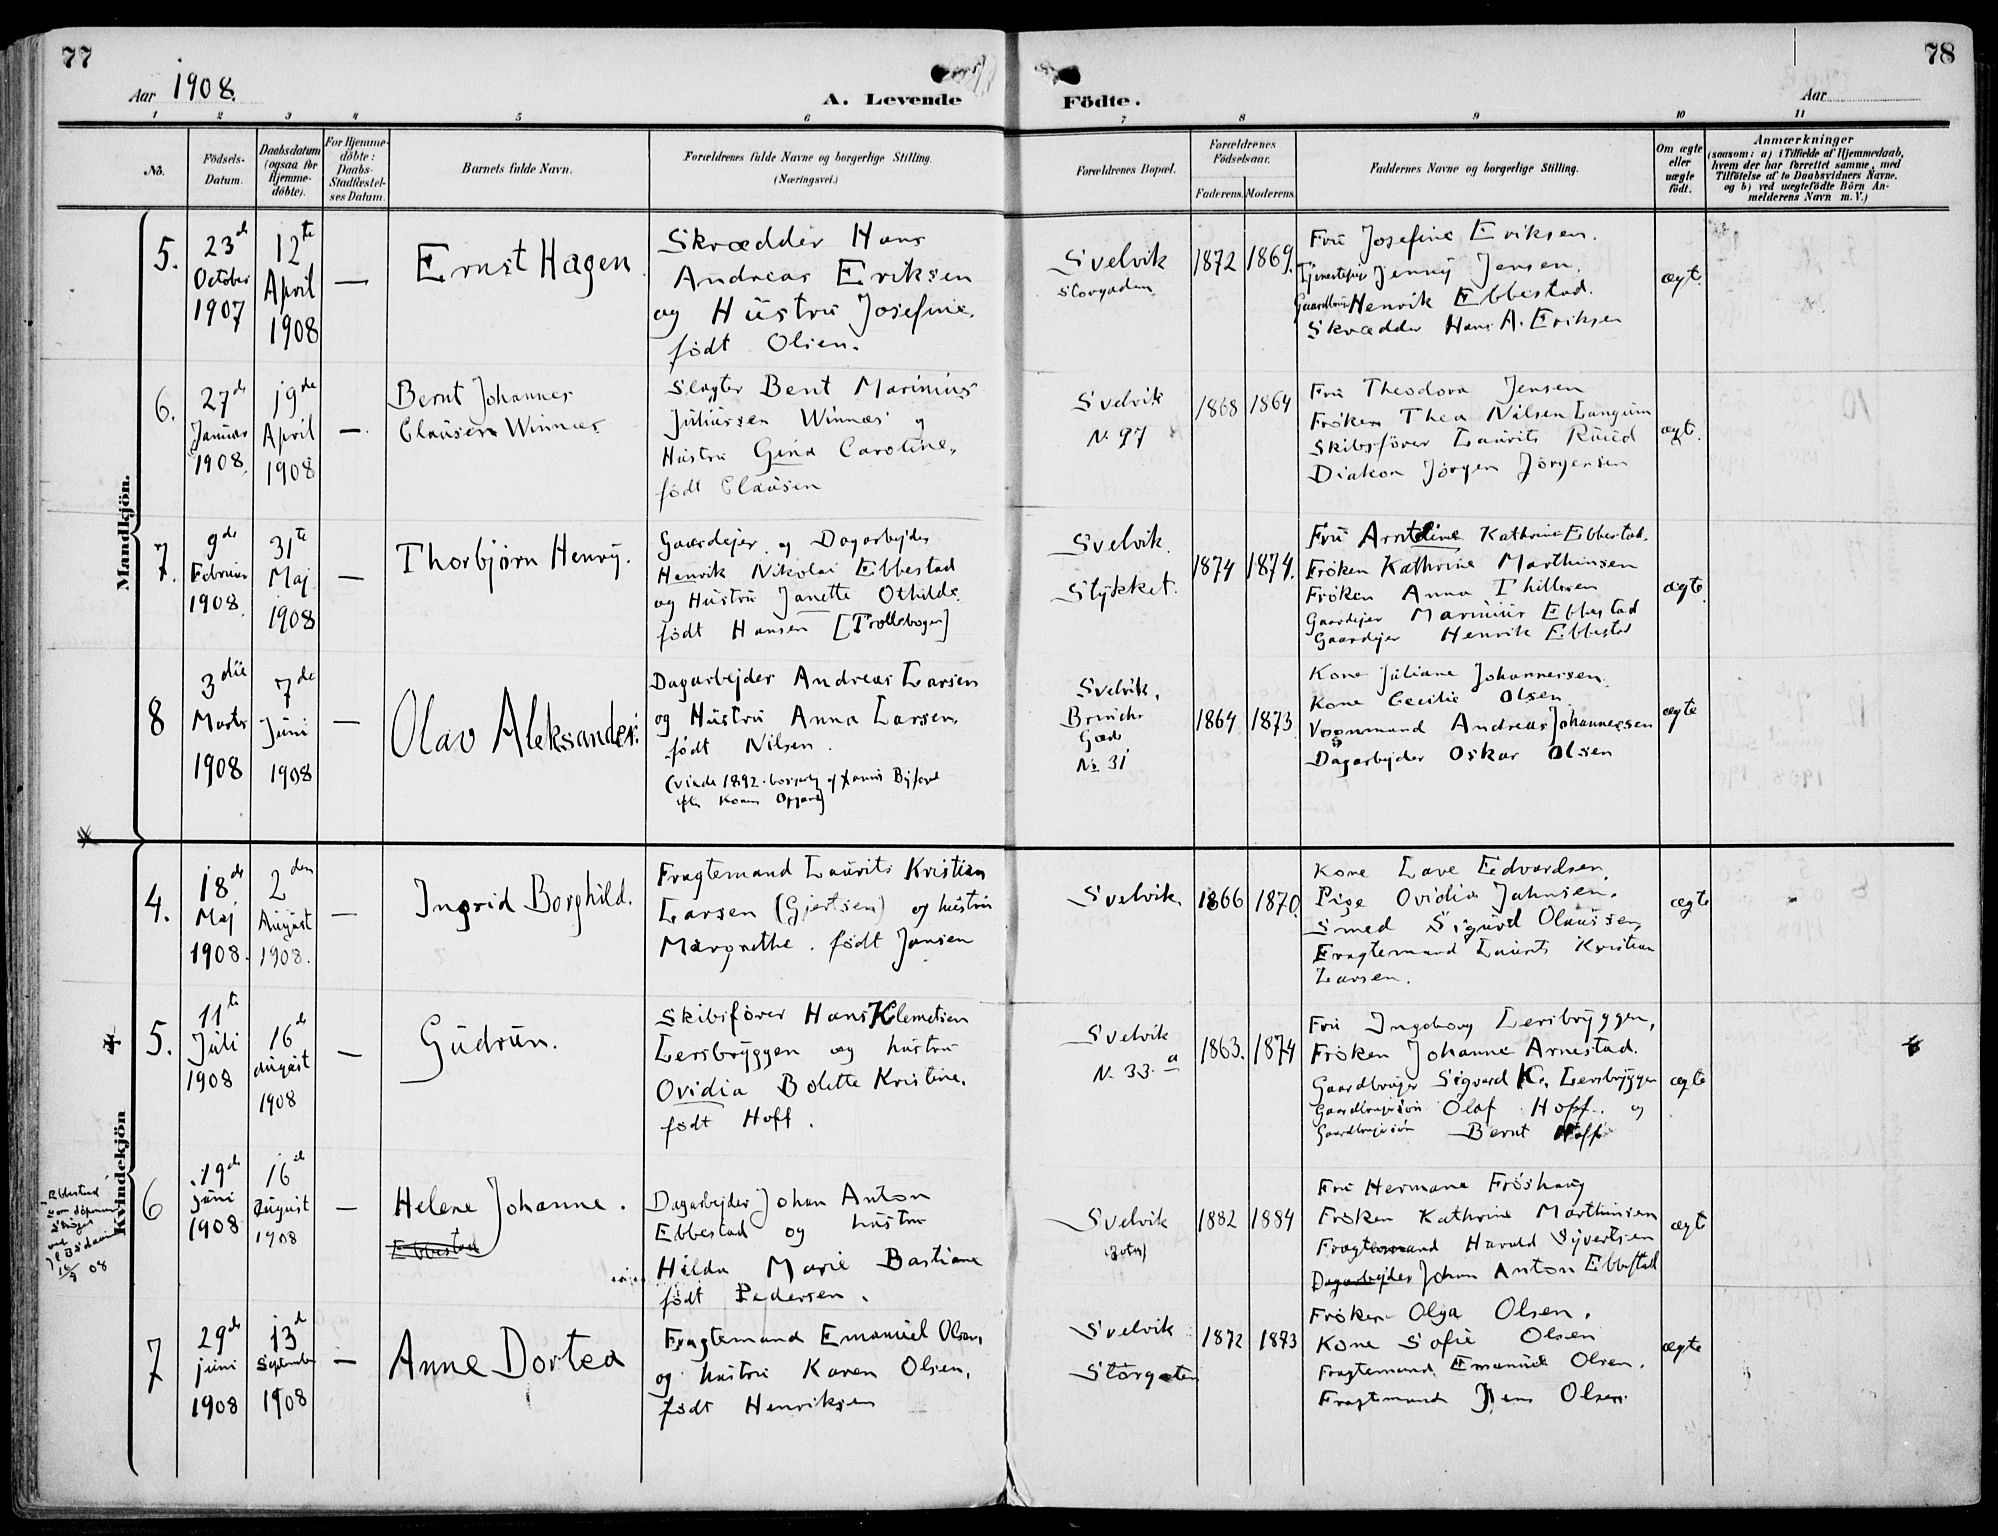 77
Aar 1908.
A. Levende
Födte.
78
Aar
1 2 3 4 5 6 7 8 9 10 11
No.
Födsels-
Datum.
Daabsdatum
(ogsaa for
Hjemme-
döbte).
For Hjemme-
döbte:
Daabs-
Stadfestel-
ses Datum.
Barnets fulde Navn.
Forældrenes fulde Navne og borgerlige Stilling.
(Næringsvei.)
Forældrenes Bopæl.
Forældrenes
Födselsaar.
Faderens. Moderens.
Faddernes Navne og borgerlige Stilling.
Om ægte
eller
uægte
födt.
Anmærkninger
(saasom: a) i Tilfælde af Hjemmedaab,
hvem der har forrettet samme, med
Tilföielse af to Daabsvidners Navne.
og b) ved uægtefödte Börn An-
melderens Navn m. V.)
Mandkjön.
5.
23d
October
1907
12te
April
1908
—
Ernst Hagen
Skrædder Hans
Andreas Eriksen
og Hüstrü Josefine.
født Olsen.
Svelvik
Storgaden
1872
1869.
Frü Josefine Eriksen.
Jenny Jensen.
Henrik Ebbestad.
Skrædder Hans A. Eriksen
ægt.
6.
27de
Januar
1908.
19de
April
1908
—
Bernt Johannes
Claüsen Winnæs
Slagter Bent Marinius
Jüliüssen Winnæs og
Hüstrü Gina Caroline,
født Claüsen
Svelvik
N. 97
1868
1864
Frü Theodora Jensen
Frøken Thea Nilsen Langüm
Skibsfører Laürits Rüüd
Diakon Jørgen Jørgensen
ægt.
7.
9de
Februar
1908.
31te
Maj
1908
—
Thorbjørn Henry.
Gaardejer og Dagarbejder
Henrik Nikolai Ebbestad
og Hüstrü Janette Othilde
født Hansen [Trollsbogen]
Svelvik.
Stykket.
1874
1874.
Frü Katrine Ebbestad.
Frøken Kathrine Marthinsen
Frøken Anna
Gaardejer Mariniüs Ebbestad
Gaardejer Henrik Ebbestad
ægte.
8
3die
Marts
1908
7de
Jüni
1908
—
Olav Aleksander.
Dagarbejder Andreas Larsen
og Hüstrü Anna Larsen,
født Nilsen.
(viede 1892
Svelvik.
No 31
1864
1873
Kone Jüliane Johannessen.
Kone Cecilie Olsen
Vognmand Andreas Johannessen
Dagarbejder Oskar Olsen
ægte
Kvindekjön
4.
18de
Maj
1908.
2den
Aügüst
1908.
—
Ingrid Borghild.
Fragtemand Laürits Kristian
Larsen (Gjertsen) og hüstrü
Margrethe. født Jansen
Svelvik.
1866
1870.
Kone Lave Edvardsen.
Pige Ovidia Jahnsen.
Smed Sigürd Olaüssen,
Fragtemand Laürits Kristian
Larsen.
ægte
5.
11te
Jüli
1908
16de
aügüst
1908
—
Güdrün.
Skibsfører Hans Klemetsen
Lersbryggen og hüstrü
Ovidia Bolette Kristine.
født Hoff.
Svelvik
N. 33. a
1863.
1874
Frü Ingeborg Lersbryggen,
Frøken Johanne Arnestad.
Gaardbrüger Sigvard K. Lersbryggen
Gaardbrügersøn Olaf Hoff. og
Gaardbrügersøn Bernt Hoff
ægte
6
19de
Jüni
1908
16de
aügüst
1908
—
Helene Johanne.
Ebbestad
Dagarbejder Johan Anton
Ebbestad og hüstrü
Hilda Marie Bastiane
født Pedersen.
Svelvik
1882
1884
Frü Hermane Frøshaug
Frøken Kathrine Marthinsen
Fragtemand Harald Syvertsen
Dagarbejder Johan Anton Ebbestad
ægt
Ebbestad
16/9 08
7
29de
jüni
1908
13de
September
1908
—
Anne Dortea
Fragtemand Emanüel Olsen,
og hüstrü Karen Olsen,
født Henriksen
Svelvik
Storgaten
1872
1873
Frøken Olga Olsen.
Kone Sofie Olsen
Fragtemand Emanüel Olsen.
Fragtemand Jens Olsen
ægte